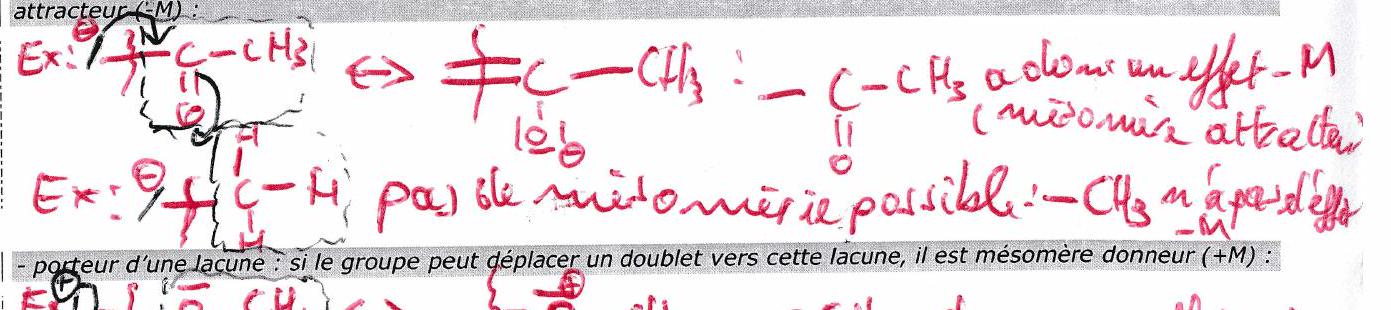 attracteur (-M) :
Ex: ⊖ C-CH3 ↔ C-CH3 : - C-CH3 a donc un effet -M
|| O |O| ⊖ || O (mésomère attracteur
Ex: ⊖ H C-H H pas de mésomérie possible : -CH3 n'a pas d'effet
-M
- porteur d'une lacune : si le groupe peut déplacer un doublet vers cette lacune, il est mésomère donneur (+M) :